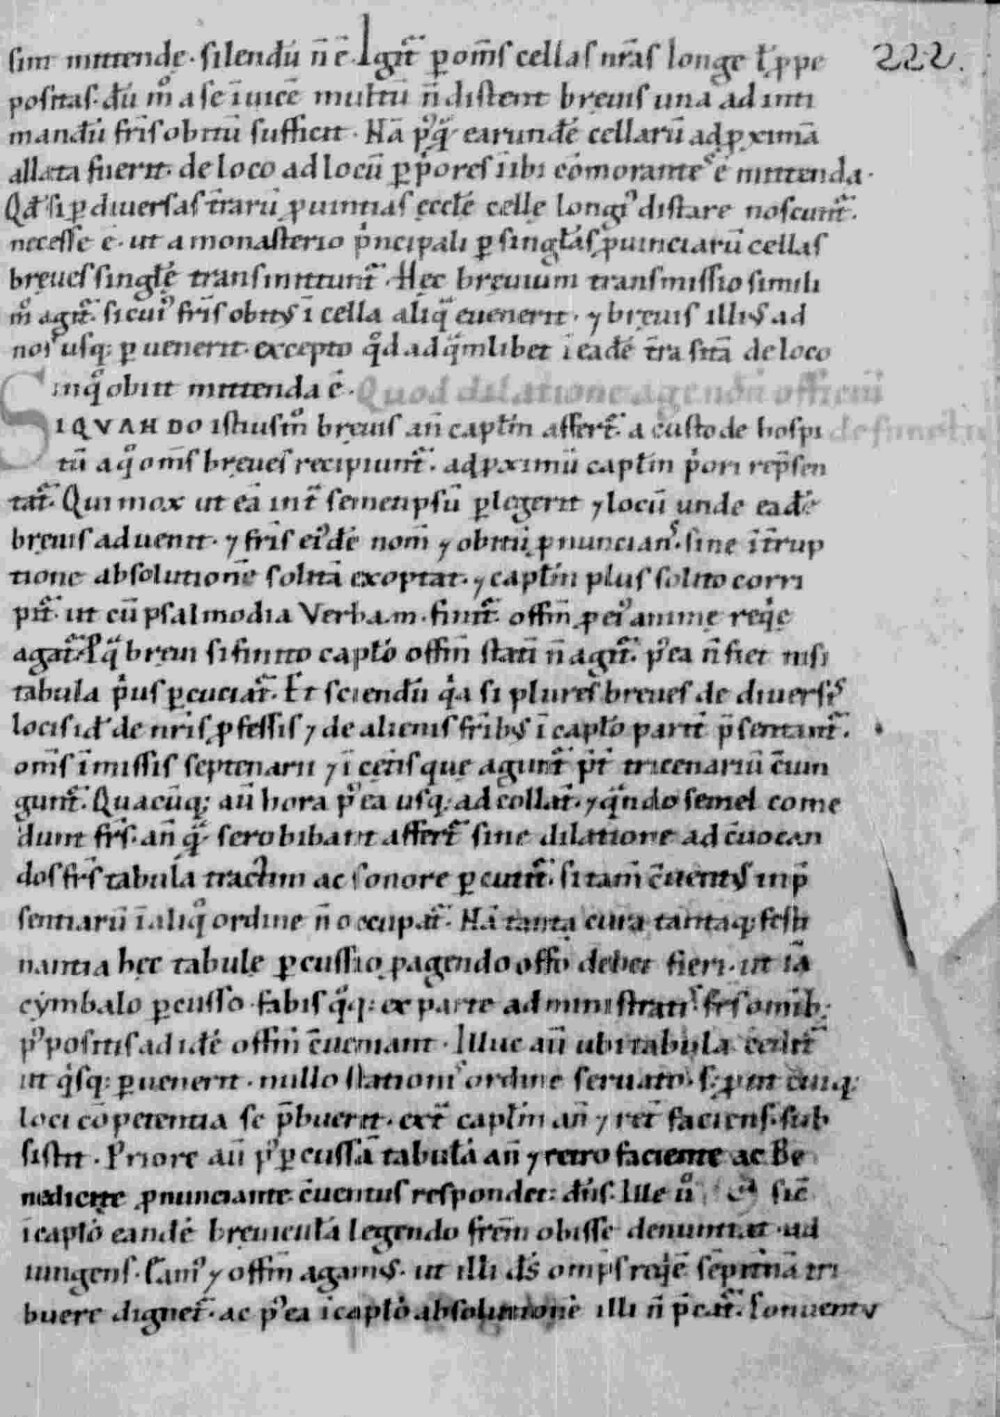 sim mittendę. silendū n̄ ē. Igit̄ ꝑ om̄s cellas nr̄as longe ł ꝓpe 222.
positas. dū m̊ a se īuicē multū n̄ distent bręuis una ad inti
mandū fr̄is obitū sufficit. Nā pꝰq̄ earundē cellarū ad ꝓximā
allata fuerit. de loco ad locū ꝑ p̄ores iībi cōmorantes ē mittenda.
Qđ si ꝑ diuersas tr̄arū ꝓuintias ęccłę cellę longiꝰ distare noscunt̄.
necesse ē. ut a monasterio p̄ncipali ꝑ singłas ꝓuinciarū cellas
bręues singłę transmittunt̄. Hęc bręuium transmissio simili
m̊ agit̄. si cuiꝰ fr̄is obitꝰ ī cella aliq̄ euenerit. ⁊ bręuis illiꝰ ad
nos usq; ꝑuenerit. excepto qd̊ ad q̄mlibet ī eadē tr̄a sitā de loco
in q̊ obiit mittenda ē. Quod dilatione agendū officiū
SI QVANDO istiusm̊ bręuis an̄ capłm affert̄. a custode hospi defunctis
tū a q̊ om̄s bręues recipiunt̄. ad ꝓximū capłm p̄ori rep̄sen
tat̄. Qui mox ut eā int̄ semetipsū ꝑlegerit ⁊ locū unde eadē
bręuis aduenit. ⁊ fr̄is eiꝰdē nom̄ ⁊ obitū ꝓnuncians. sine īt̄rup
tione absolutionē solitā exoptat. ⁊ capłm plus solito corri
pit̄. ut cū psalmodia Verba.m. finit̄. offm̄ ꝓ eiꝰ animę req̄ę
agat̄. Pꝰq̄ breui si finito capło offm̄ stati n̄ agit̄. pꝰea n̄ fiet nisi
tabula p̄us ꝑcuciat̄. Et sciendū q̄a si plures breues de diuersis
locis id̄ de nr̄is ꝓfessis ⁊ de alienis fr̄ibꝰ ī capło parit̄ p̄sentant̄.
om̄s ī missis septenarii ⁊ ī cęt̄is que agunt̄ p̄t̄ tricenariū c̄iun
gunt̄. Quacūq; aū hora pꝰea usq; ad collat̄. ⁊ q̄ndo semel come
dunt fr̄s. an̄ q̄ sero bibant affert̄ sine dilatione ad c̄uocan
dos fr̄s tabula tractim ac sonore ꝑcutit̄. si tam̄ c̄uentꝰ in p̄
sentiarū ī aliq̊ ordine n̄ occupat̄. Nā tanta cura tantaq; festi
nantia hęc tabulę ꝑcussio ꝓ agendo offō debet fieri. ut iā
cymbalo ꝑcusso. fabis q̊q; ex parte administratis. fr̄s om̄ib;
pꝰpositis ad idē offm̄ c̄ueniant. Illuc aū ubi tabula
ut q̄sq; ꝑuenerit. nullo stationis ordine seruato. s; ꝓut cuiq;
loci cōpetentia se p̄buerit. ext̄ capłm an̄ ⁊ ret̄ faciens. sub
sistit. Priore aū pꝰ ꝑcussā tabułā an̄ ⁊ retro faciente ac Be
nedicite ꝓnunciante c̄uentus respondet: dn̄s. Ille ů sic̄
ī capło eandē breuiculā legendo frēm obisse denuntiat. ad
iungens. ⁊ offm̄ agamꝰ. ut illi dš omp̄s reqę̄ sēpit̄nā tri
buere dignet̄. ac pꝰea ī capło absolutionē illi n̄ p̄cat̄. Conuentꝰ